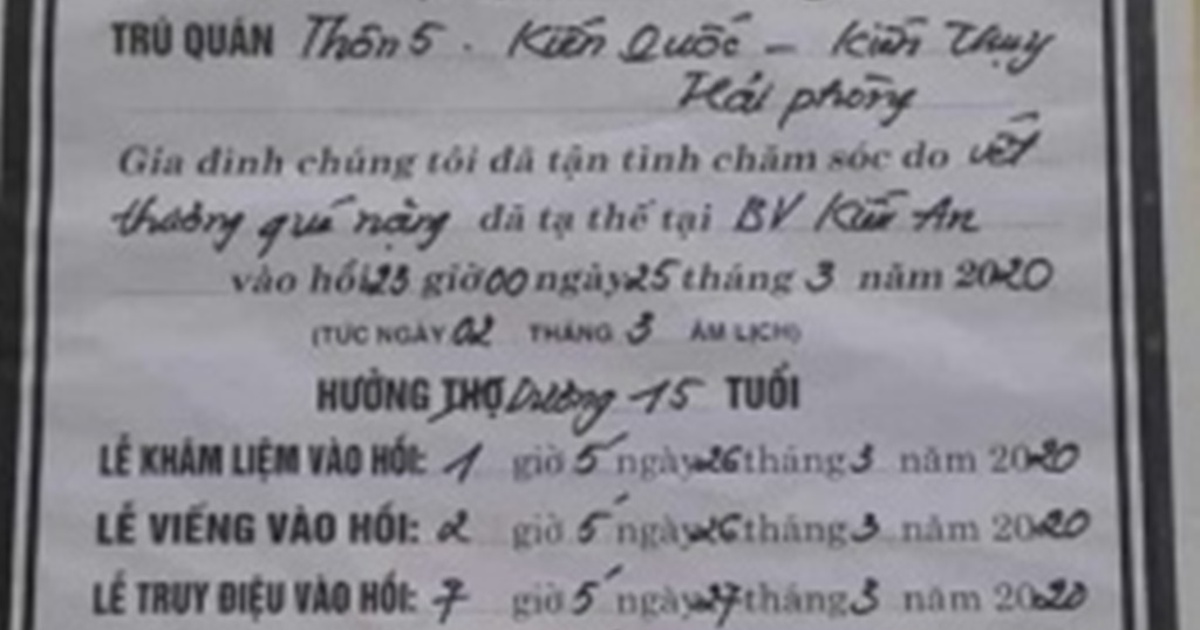 TRÚ QUÁN Thôn 5 . Kiến Quốc - Kiến Thụy
Hải phòng
Gia đình chúng tôi đã tận tình chăm sóc do vết
thương quá nặng đã tạ thế tại BV Kiến An
vào hồi 23 giờ 00 ngày 25 tháng 3 năm 2020
(TỨC NGÀY 02 THÁNG 3 ÂM LỊCH)
HƯỞNG THỌ Dương 15 TUỔI
LỄ KHÂM LIỆM VÀO HỒI: 1 giờ 5' ngày 26 tháng 3 năm 2020
LỄ VIẾNG VÀO HỒI: 2 giờ 5' ngày 26 tháng 3 năm 2020
LỄ TRUY ĐIỆU VÀO HỒI: 7 giờ 5' ngày 27 tháng 3 năm 2020